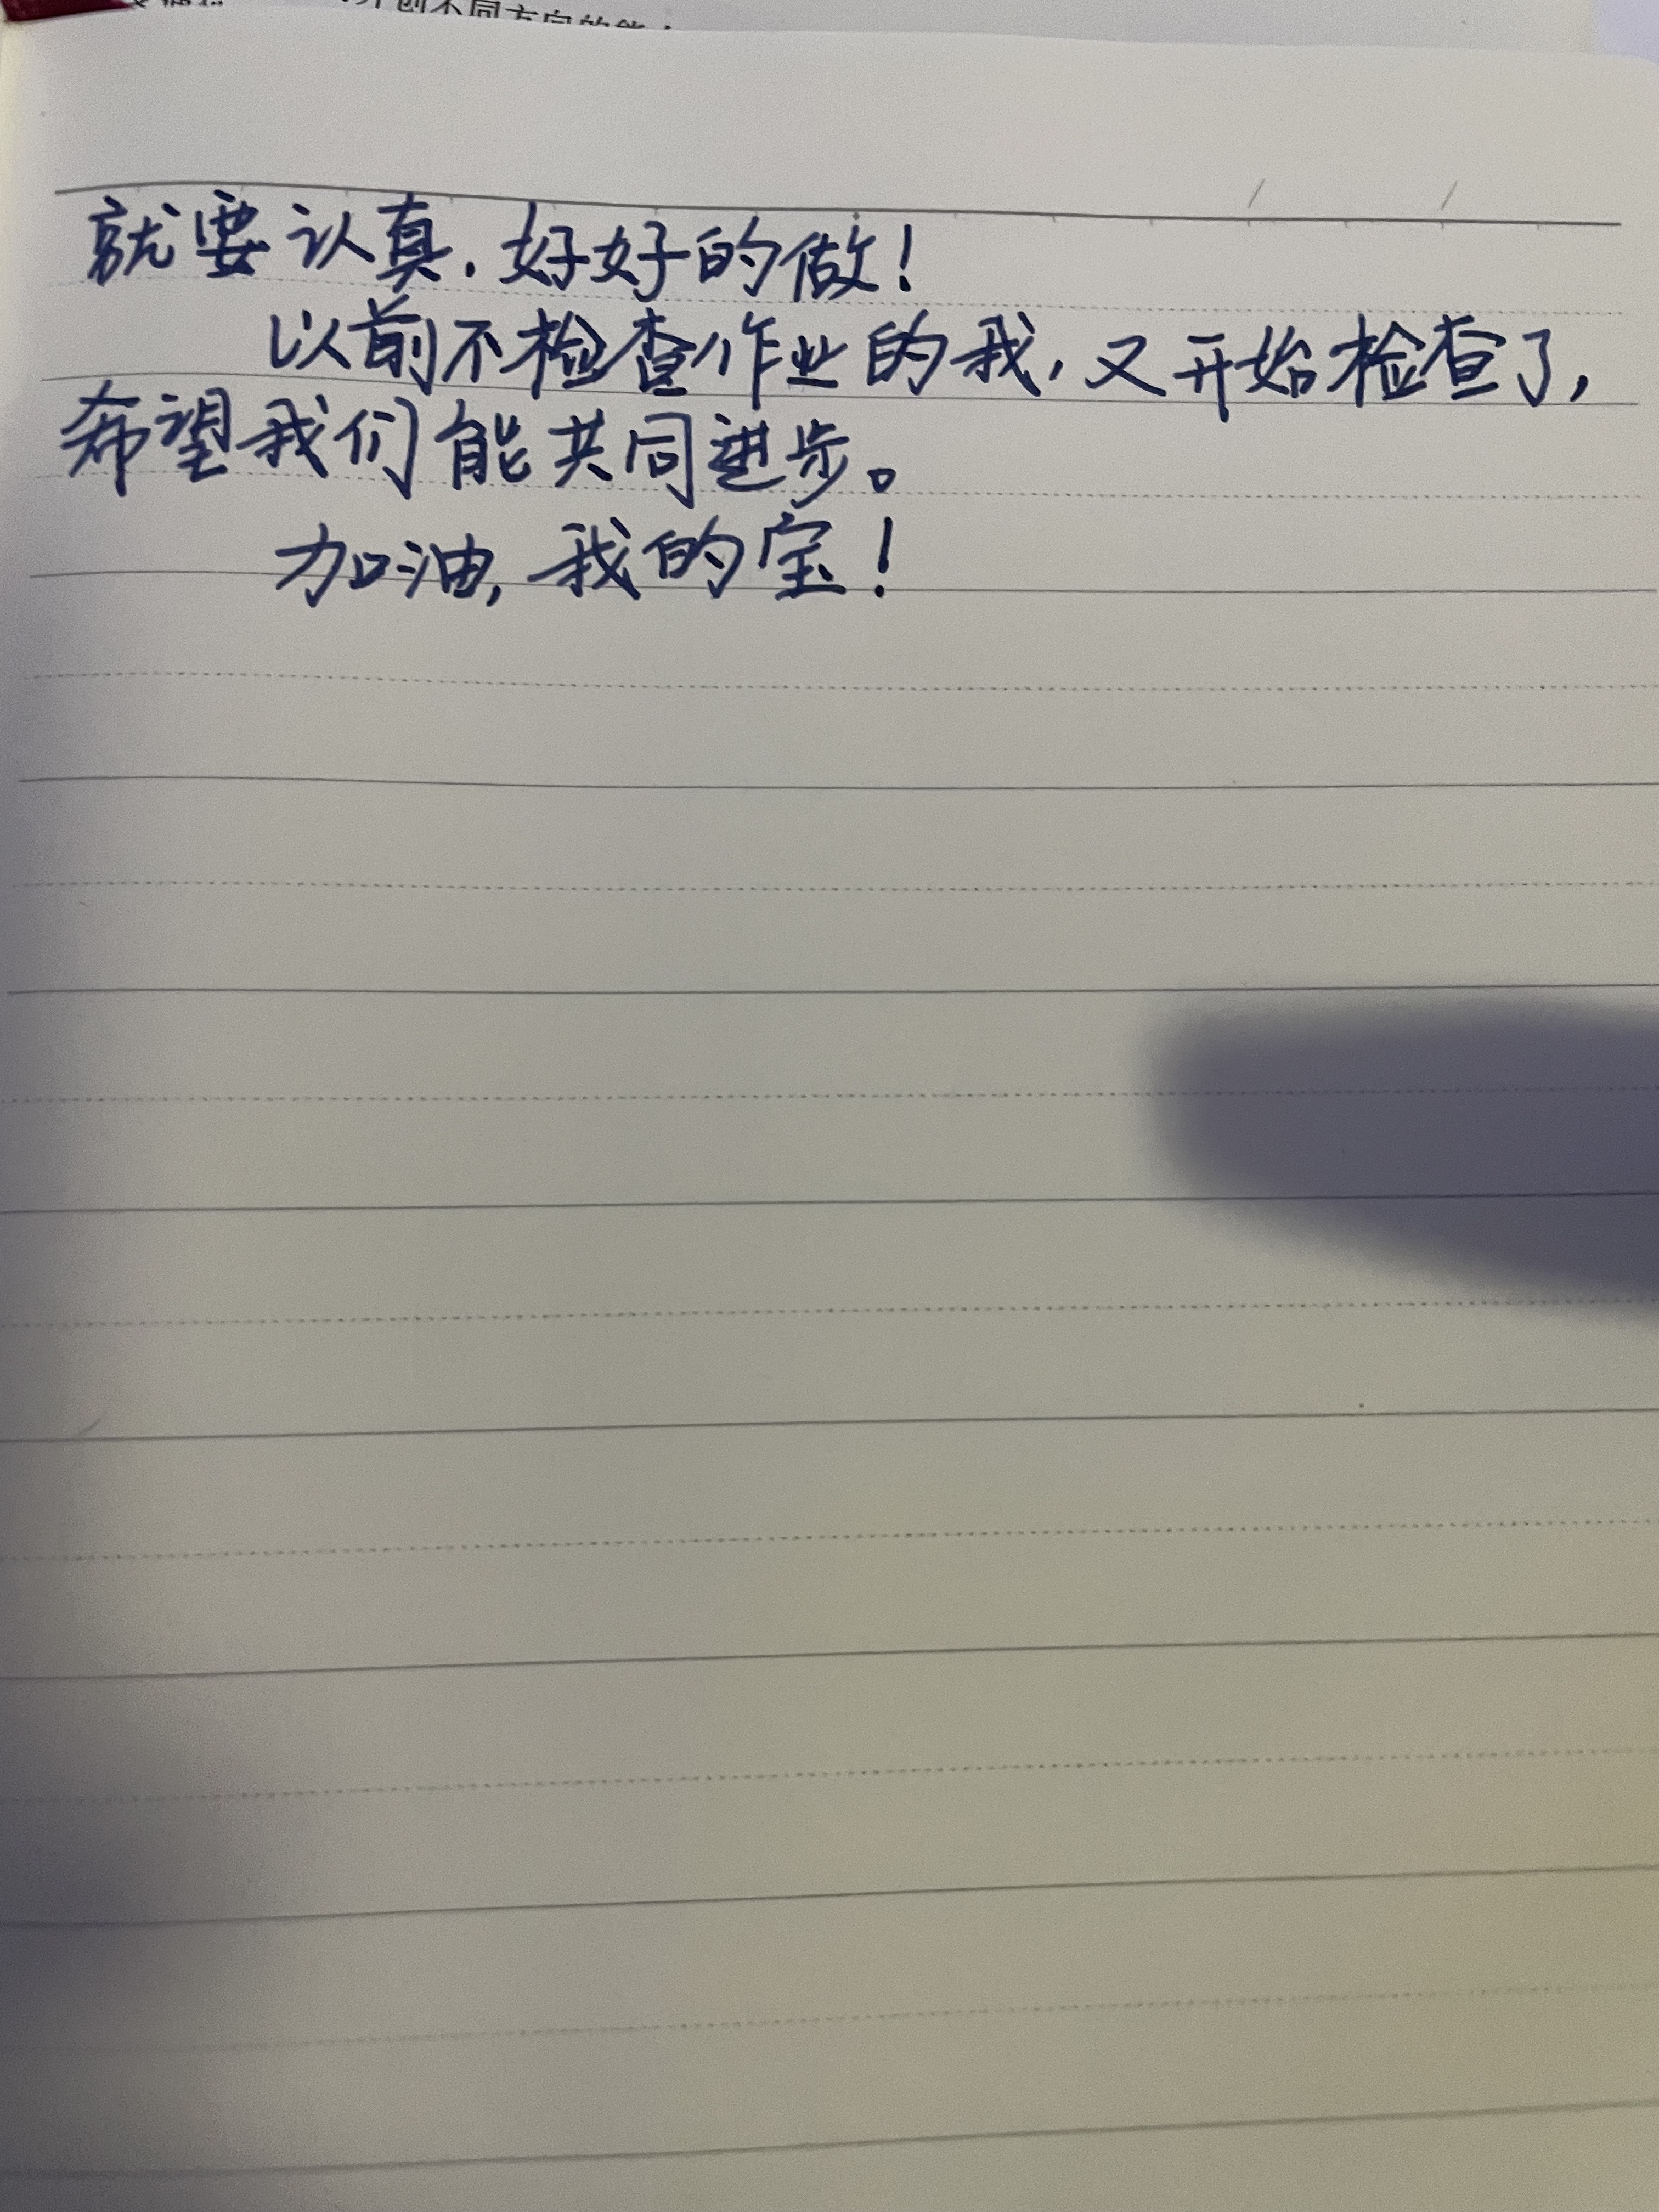 开创不同方向的能
就要认真，好好的做！
以前不检查作业的我，又开始检查了，
希望我们能共同进步。
加油，我的宝！